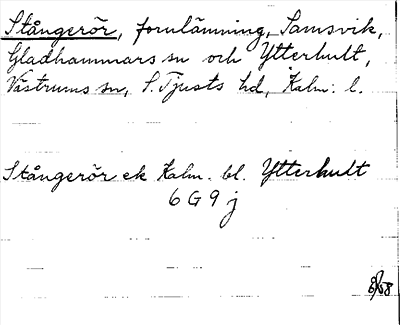 Stångerör, fornlämning, Samsvik,
Gladhammars sn och Ytterhult,
Västrums sn, S. Tjusts hd, Kalm. l.
Stångerör ek Kalm. bl. Ytterhult
6 G 9 j